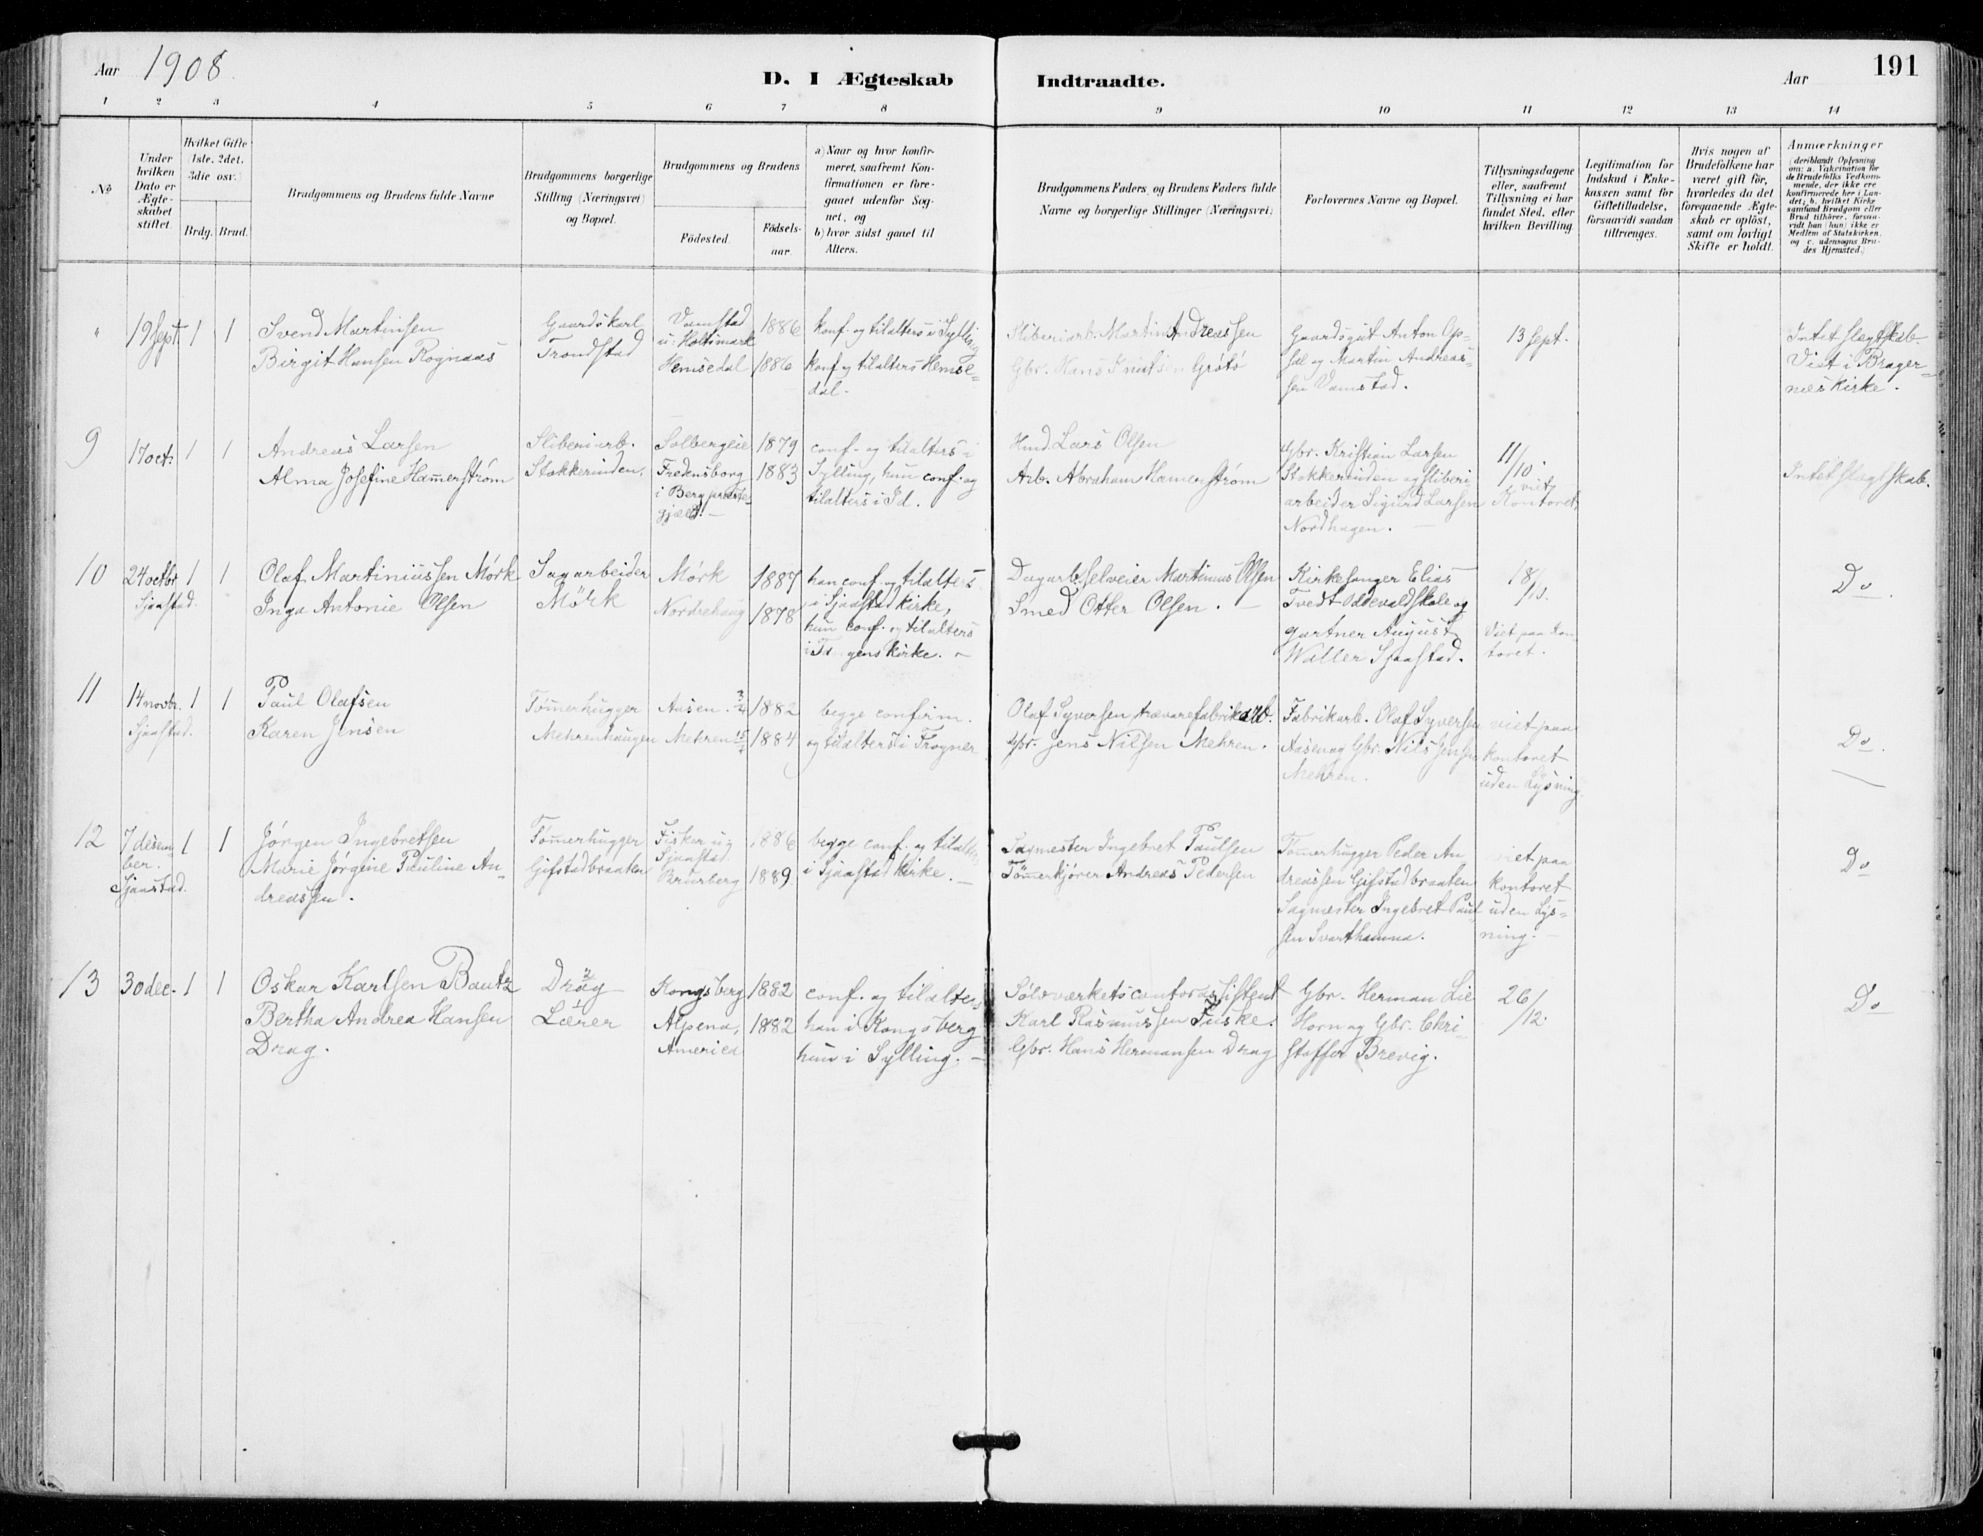 Aar 1908.
D. I Ægteskab Indtraadte.
Aar 191
1 2 3 4 5 6 7 8 9 10 11 12 13 14
№
Under hvilken Dato er Ægteskabet stiftet.
Hvilket Gifte (1ste, 2det, 3die osv.)
Brdg. Brud.
Brudgommens og Brudens fulde Navne
Brudgommens borgerlige Stilling (Næringsvei) og Bopæl.
Brudgommens og Brudens
Fødested. Fødselsaar.
a) Naar og hvor konfirmeret, saafremt Konfirmationen er foregaaet udenfor Sognet, og
b) hvor sidst gaaet til Alters.
Brudgommens Faders og Brudens Faders fulde Navne og borgerlige Stillinger (Næringsvei)
Forlovernes Navne og Bopæl.
Tillysningsdagene eller, saafremt Tillysning ei har fundet Sted, efter hvilken Bevilling
Legitimation for Indskud i Enkekassen samt for Giftetilladelse, forsaavidt saadan tiltrænges.
Hvis nogen af Brudefolkene har været gift før, hvorledes da det foregaaende Ægteskab er opløst, samt om lovligt Skifte er holdt.
Anmærkninger
(deriblandt Oplysning om: a. Vakcination for de Brudefolks Vedkommende, der ikke ere konfirmerede her i Landet; b. hvilket Kirkesamfund Brudgom eller Brud tilhører, forsaavidt han (hun) ikke er Medlem af Statskirken, og c. udensogns Brudes Hjemsted.)
" 19 Sept. 1 1
Svend Martinsen
Birgit Hansen Rognaas
Gaardskarl
Trondstad
Vamstad
u. Holtsmark 1886
Hemsedal 1886
konf. og tilalters i Sylling
konf. og tilalters Hemse=
dal.
Sliberiarb. Martin Andreassen
Gbr. Hans Knutsen Grøtø
Gaardsgut Anton Op-
sal og Martin Andreas-
sen Vamstad.
13 Sept.
Intet slegtskab.
Viet i Brager=
nes kirke.
9 17 oct. 1 1
Andreas Larsen
Alma Josefine Hamerstrøm
Sliberiarb.
Stokkerinden.
Solbergeie 1879
Fredensborg 1883
i Berg præste-
gjæld. —
conf. og tilalters i
Sylling, hun conf. og
tilalters i Id.
Hmd. Lars Olsen
Arb. Abraham Hamerstrøm
Gbr. Kristian Larsen
Stokkerinden og sliberi
arbeider Sigurd Larsen
Nordhagen. —
11/10.
viet
Kontoret.
Intet slegtskab.
10 24 octbr. 1 1
Sjaastad.
Olaf Martiniussen Mørk
Inga Antonie Olsen
Sagarbeider
Mørk
Mørk 1887
Nordrehaug 1878
han conf. og tilalters
i Sjaastad kirke,
hun conf. og tilalters
kirke. —
Dagarb. selveier Martinius Olsen
Smed Otter Olsen. —
Kirkesanger Elias
Tvedt Oddevaldskole og
gartner August
Waller Sjaastad.
18/10.
Viet paa Kon
toret.
Do.
11 14 novbr. 1 1
Sjaastad.
Paul Olafsen
Karen Jensen
Tømerhugger
Mehrenhaugen
Aasen 3/4 1882
Mehren 1884
begge confirm.
og tilalters i Frogner
Olaf Syversen trævarefabrikarb.
Gbr. Jens Nilsen Mehren.
Fabrikarb. Olaf Syversen
Aasen og Gbr. Nils Jensen
Mehren.
viet paa
kontoret
uden Lysning.
Do.
12 7 desem=
ber. 1 1
Sjaastad.
Jørgen Ingebretsen
Marie Jørgine Pauline An-
dreassen.
Tømerhugger
Gifstadbraaten
Fisker ug 1886
Sjaastad.
1889.
begge conf. og tilalters
i Sjaastad kirke. —
Sagmester Ingebret Paulsen
Tømerkjører Andreas Pedersen
Tømerhugger Peder An
dreassen Gifstadbraaten
Sagmester Ingebret Paul
sen Svarthamna.
viet paa
kontoret
uden Lys=
ning. —
Do
13 30 dec. 1 1
Oskar Karlsen Bautz
Bertha Andrea Hansen
Drag.
Drag
Lærer
Kongsberg 1882
Alpena, 1882
America
conf. og tilalters
han i Kongsberg
hun i Sylling. —
Sølvværkets contorassistent
Karl Rasmussen Fuske.
Gbr. Hans Hermansen Drag
Gbr. Herman Lie
Horn og Gbr. Chri-
stoffer Brevig.
26/12.
Do